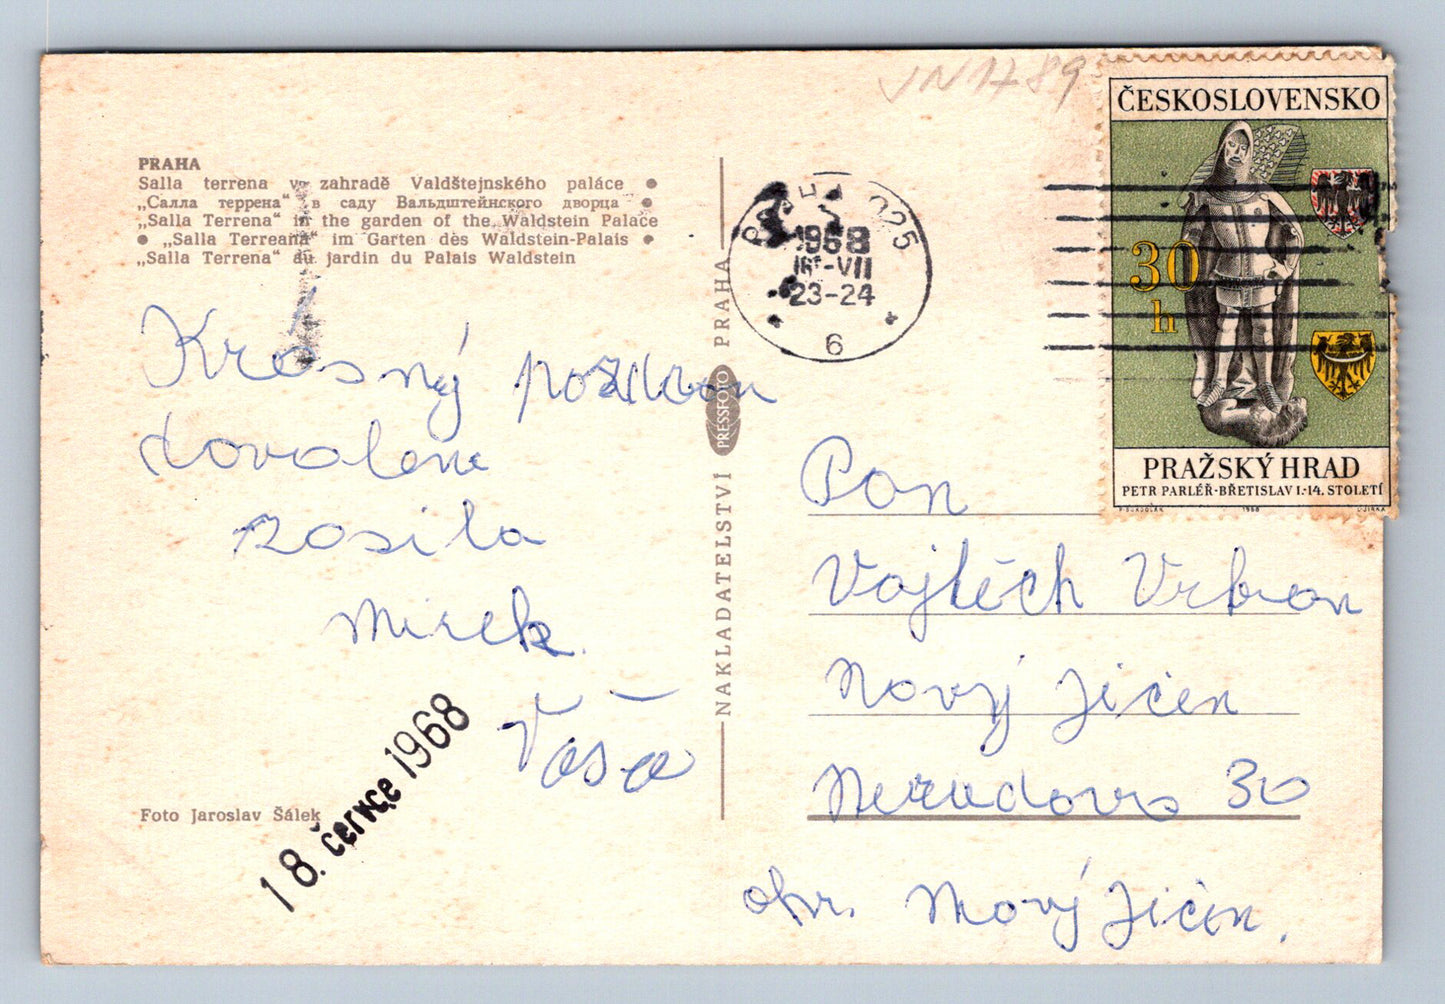 PRAHA
Salla terrena v zahradě Valdštejnského paláce ●
„Салла террена“ в саду Вальдштейнского дворца ●
„Salla Terrena“ in the garden of the Waldstein Palace
● „Salla Terreana“ im Garten des Waldstein-Palais ●
„Salla Terrena“ au jardin du Palais Waldstein
Krásný pozdrav
dovolené
zasílá
Mirek.
Váša
Foto Jaroslav Šálek
18. červce 1968
NAKLADATELSTVÍ PRESSFOTO PRAHA
PRAHA 025
1968
16-VII
23-24
6
JN1789
ČESKOSLOVENSKO
30
h
PRAŽSKÝ HRAD
PETR PARLÉŘ-BŘETISLAV I.-14. STOLETÍ
1968 J.JIRKA
Pan
Vojtěch Vrban
Nový Jičín
Nerudova 30
okr. Nový Jičín.